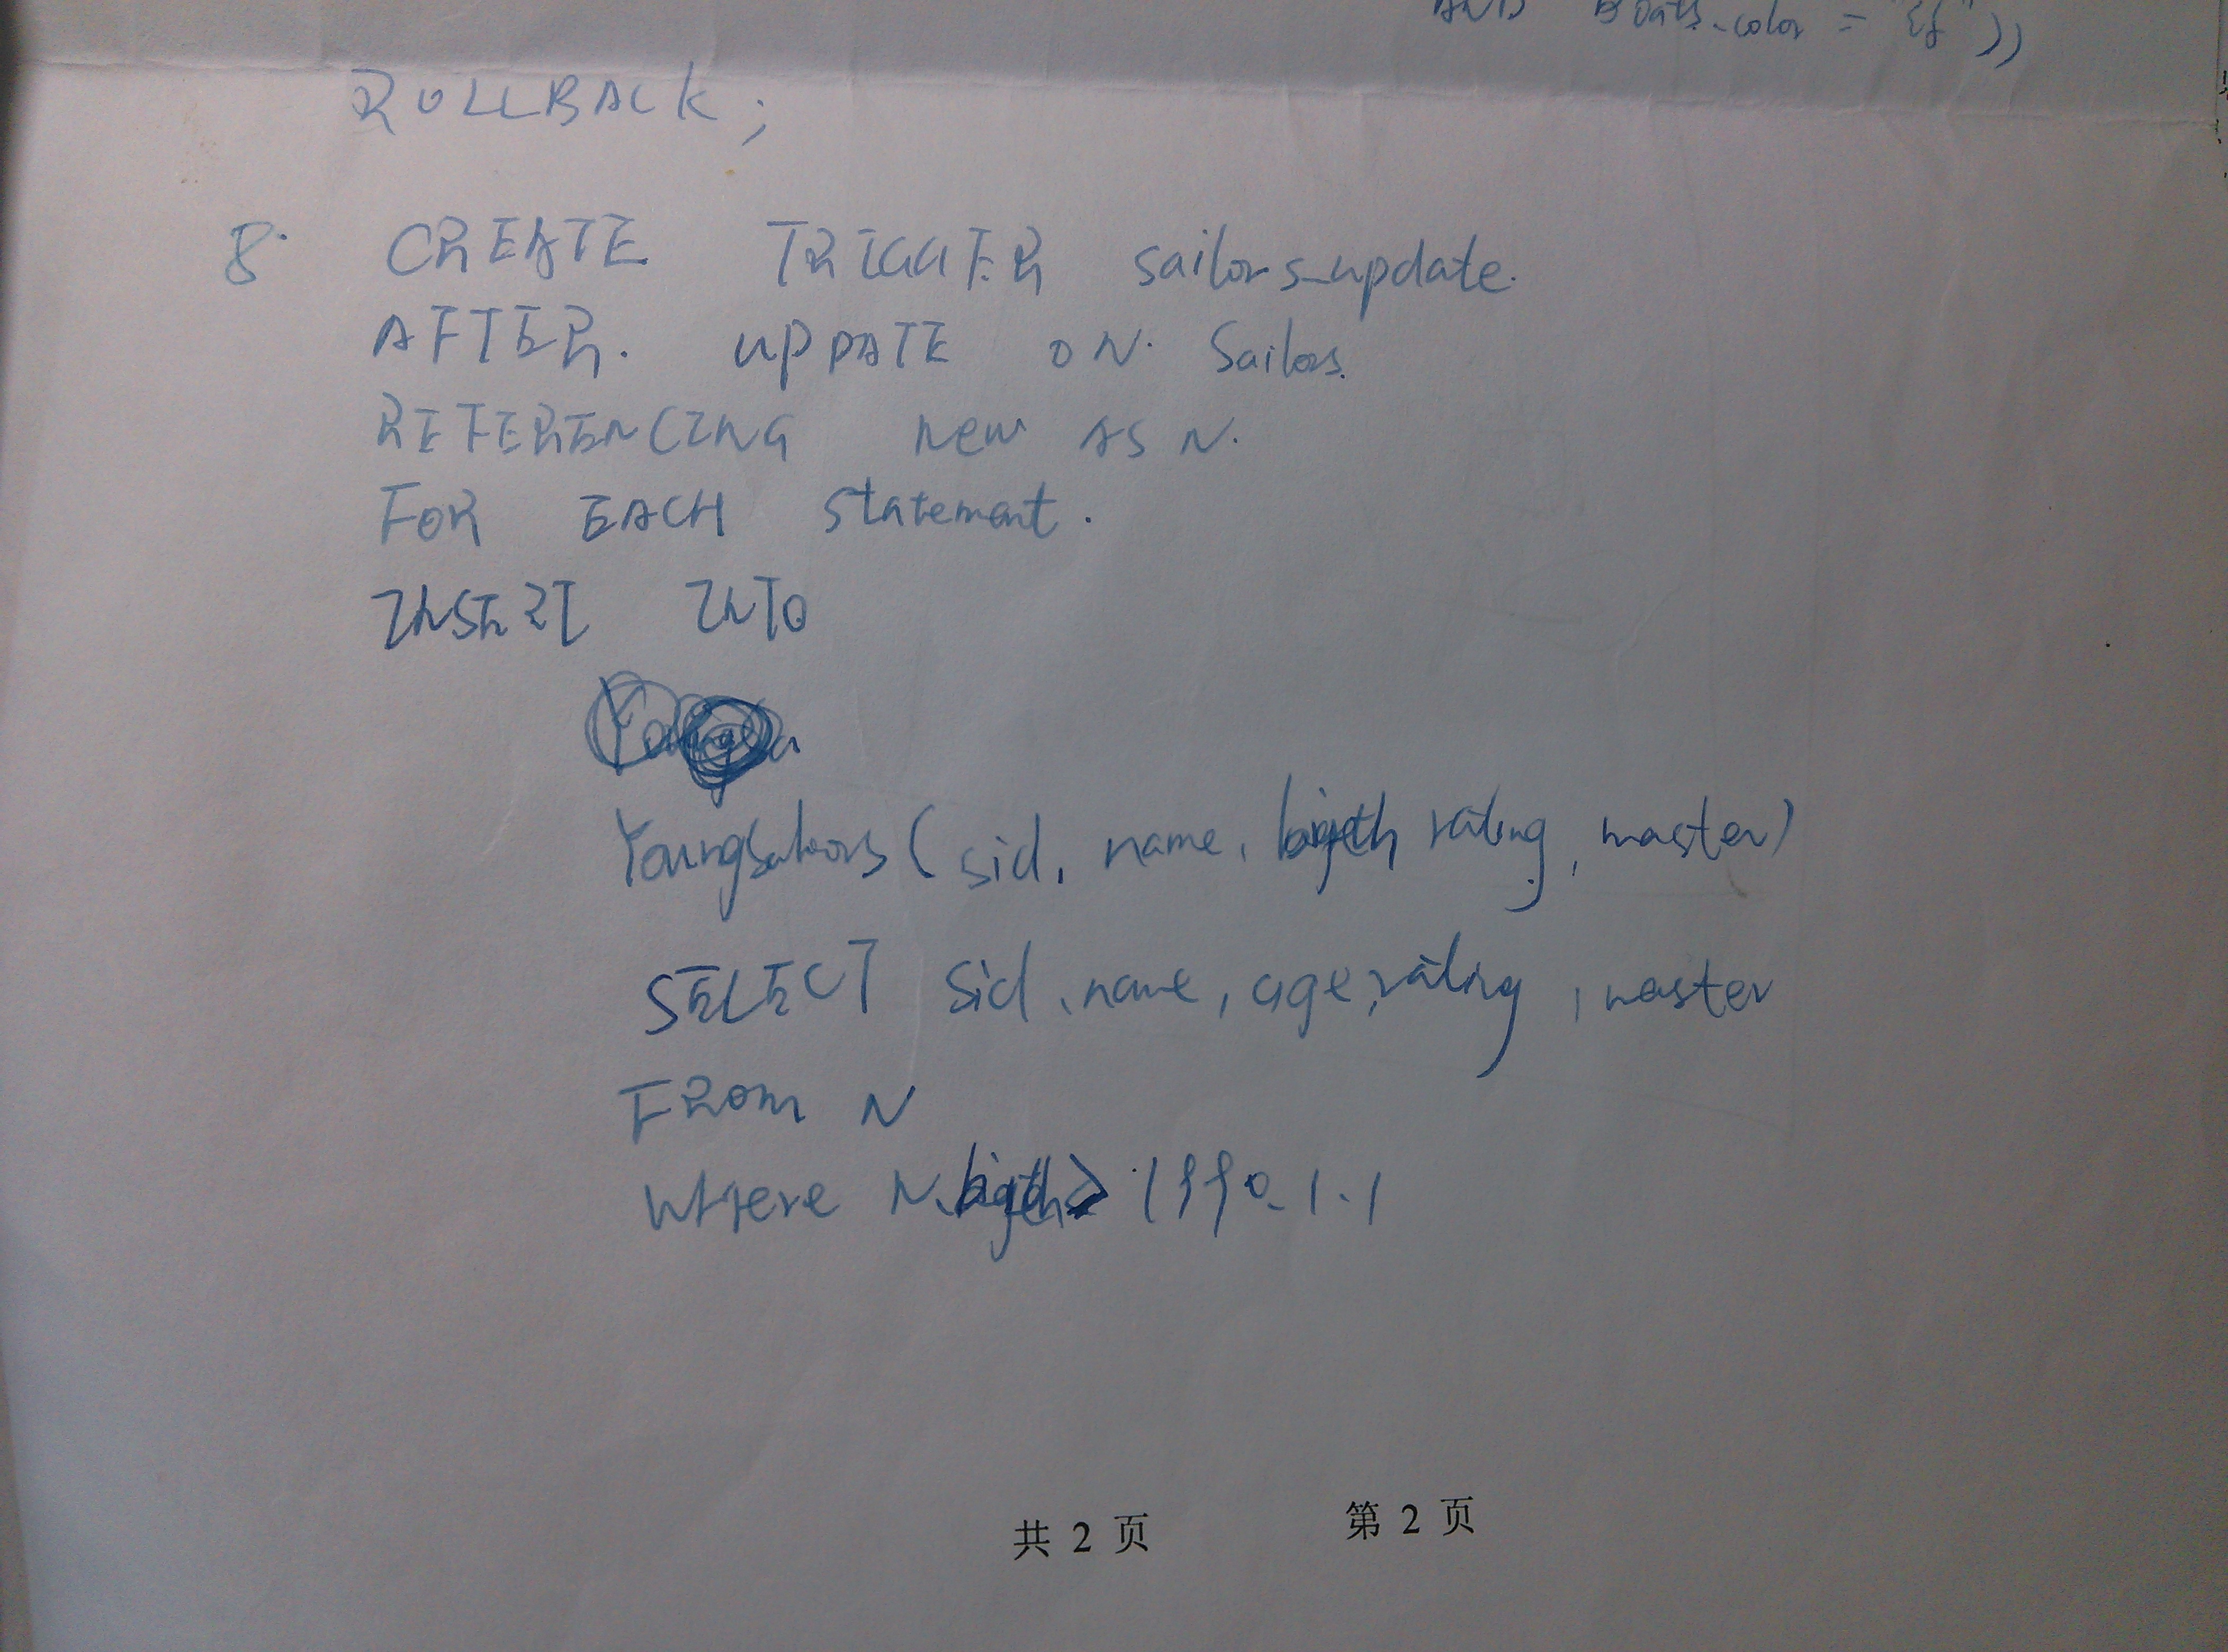 AND Boats.color = " "))
ROLLBACK;
8. CREATE TRIGGER sailors_update.
AFTER. UPDATE ON. Sailors.
REFERENCING new AS N.
FOR EACH statement.
INSERT INTO
Youngsailors (sid, name, rating, master)
SELECT sid, name, age, rating, master
FROM N
where N. > 1990.1.1
共 2 页 第 2 页